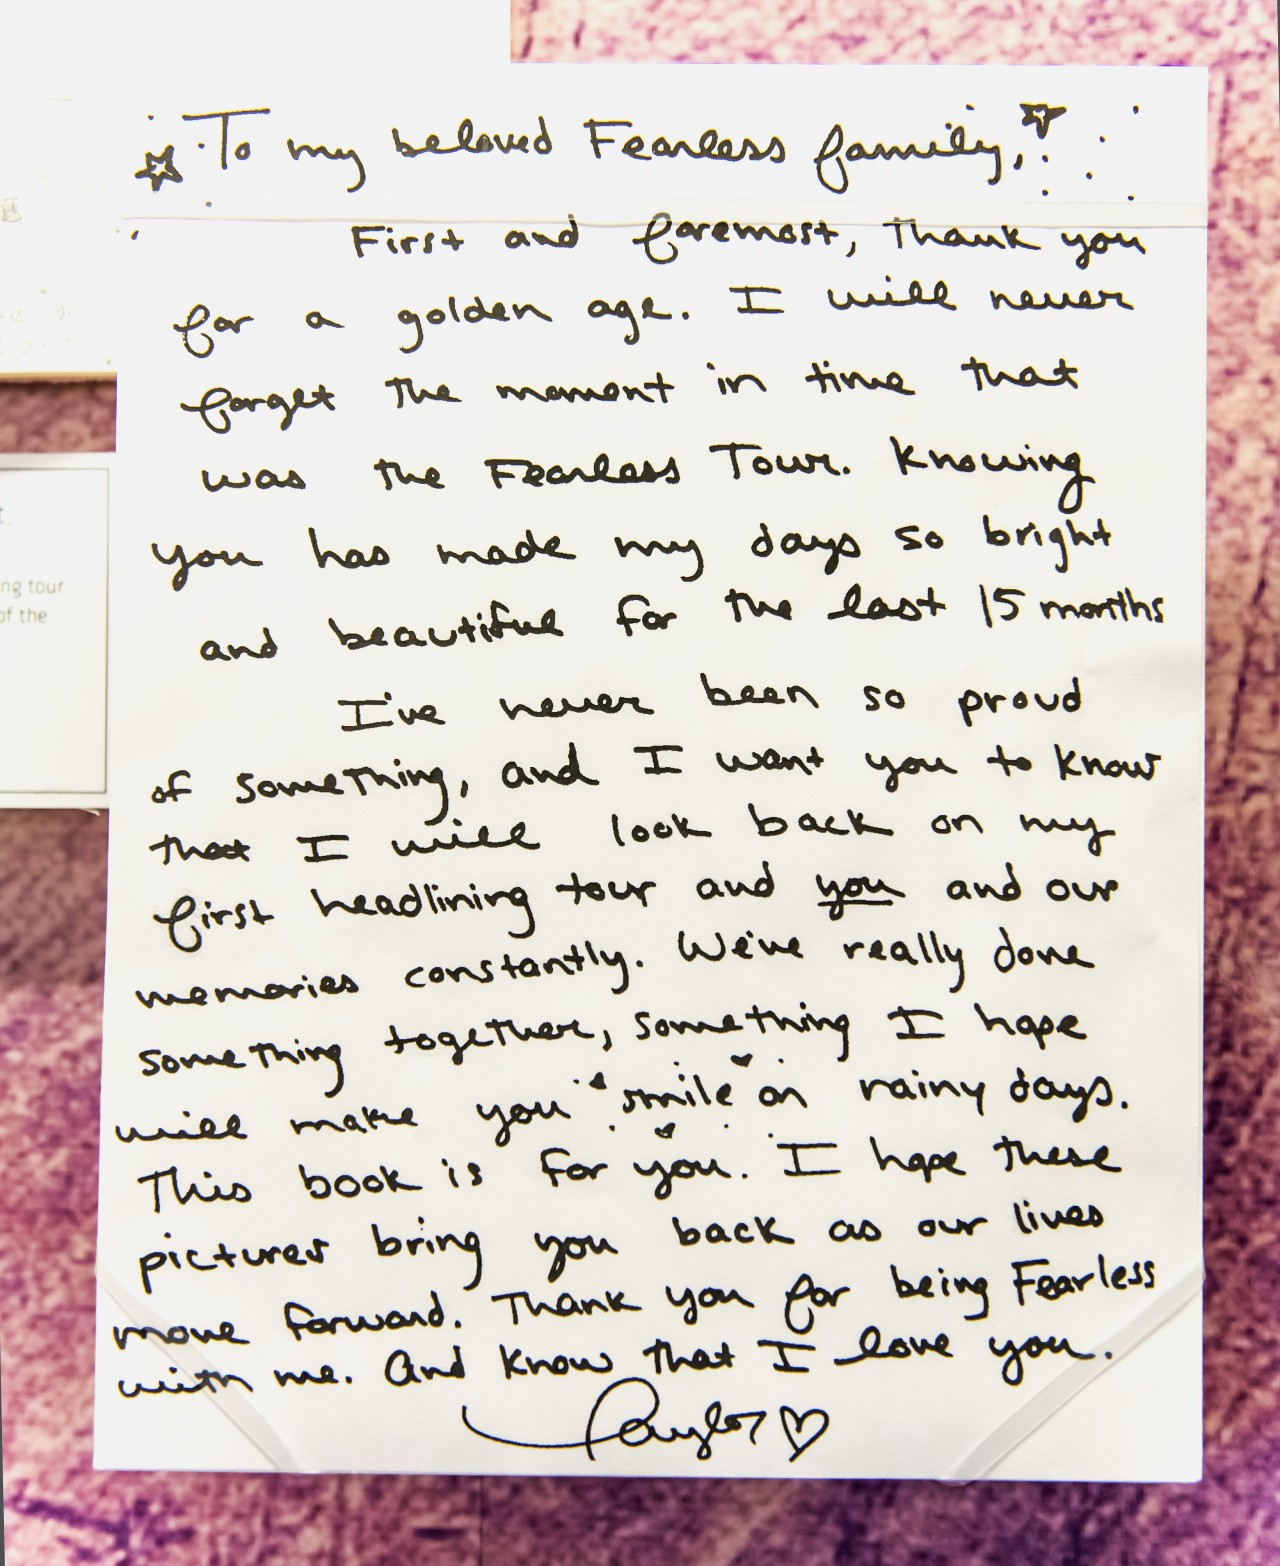 To my beloved Fearless family,
First and foremost, Thank you
for a golden age. I will never
forget the moment in time that
was the Fearless Tour. Knowing
you has made my days so bright
and beautiful for the last 15 months
I've never been so proud
of something, and I want you to know
that I will look back on my
first headlining tour and you and our
memories constantly. We've really done
something together, something I hope
will make you smile on rainy days.
This book is for you. I hope these
pictures bring you back as our lives
move forward. Thank you for being Fearless
with me. And know that I love you.
Taylor
ng tour
of the